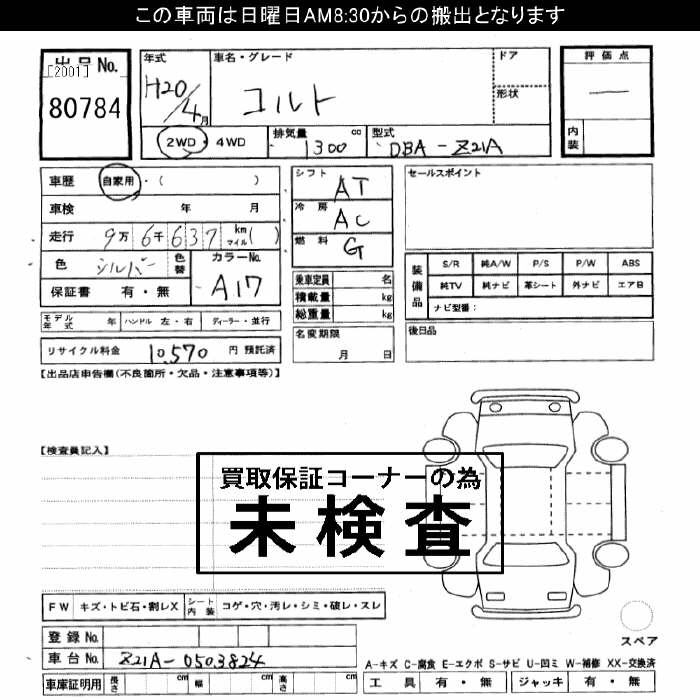 この車両は日曜日AM8:30からの搬出となります
出品No.
[2001]
80784
年式 車名・グレード ドア
H20/4月 コルト
形状
2WD・4WD 排気量 1300 cc 型式 DBA-Z21A
評価点
—
内装
車歴 自家用・( )
車検 年 月
走行 9万6千637 km マイル( )
色 シルバー 色替 カラーNo. A17
保証書 有・無
シフト AT
冷房 AC
燃料 G
乗車定員 名
積載量 kg
総重量 kg
名変期限
月 日
セールスポイント
装備品 S/R 純A/W P/S P/W ABS
純TV 純ナビ 革シート 外ナビ エアB
ナビ型番:
後日品
モデル年式 年 ハンドル 左・右 ディーラー・並行
リサイクル料金 10,570 円 預託済
【出品店申告欄(不良箇所・欠品・注意事項等)】
【検査員記入】
買取保証コーナーの為
未検査
FW キズ・トビ石・割レX シート内装 コゲ・穴・汚レ・シミ・破レ・スレ
登録No.
車台No. Z21A-0503824
車庫証明用 長さ cm 幅 cm 高さ cm
スペア
A-キズ C-腐食 E-エクボ S-サビ U-凹ミ W-補修 XX-交換済
工具 有・無 ジャッキ 有・無